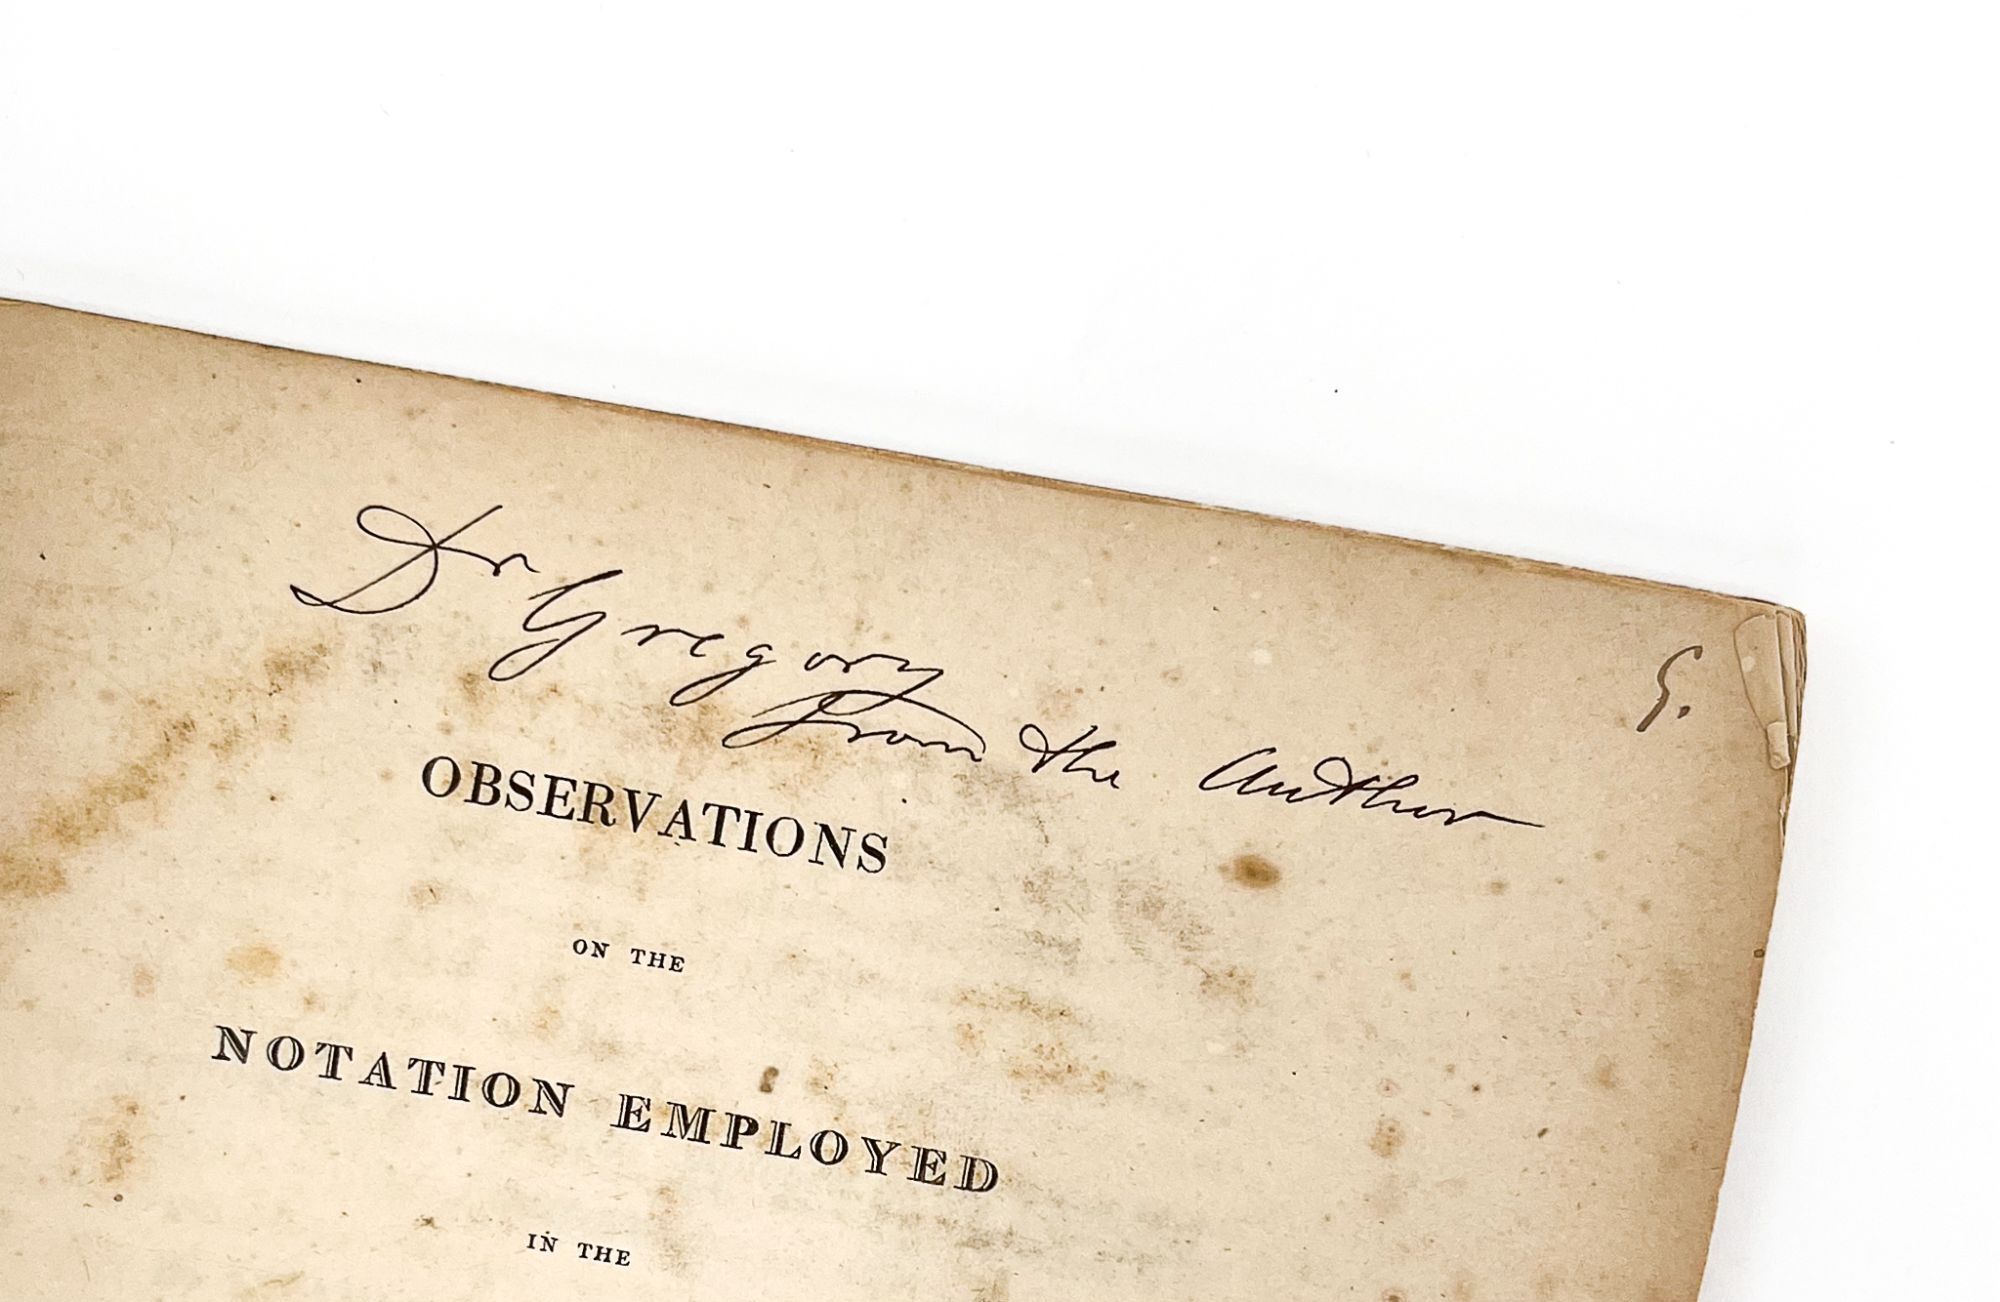 Dr Gregory
from the Author
5.
OBSERVATIONS
ON THE
NOTATION EMPLOYED
IN THE